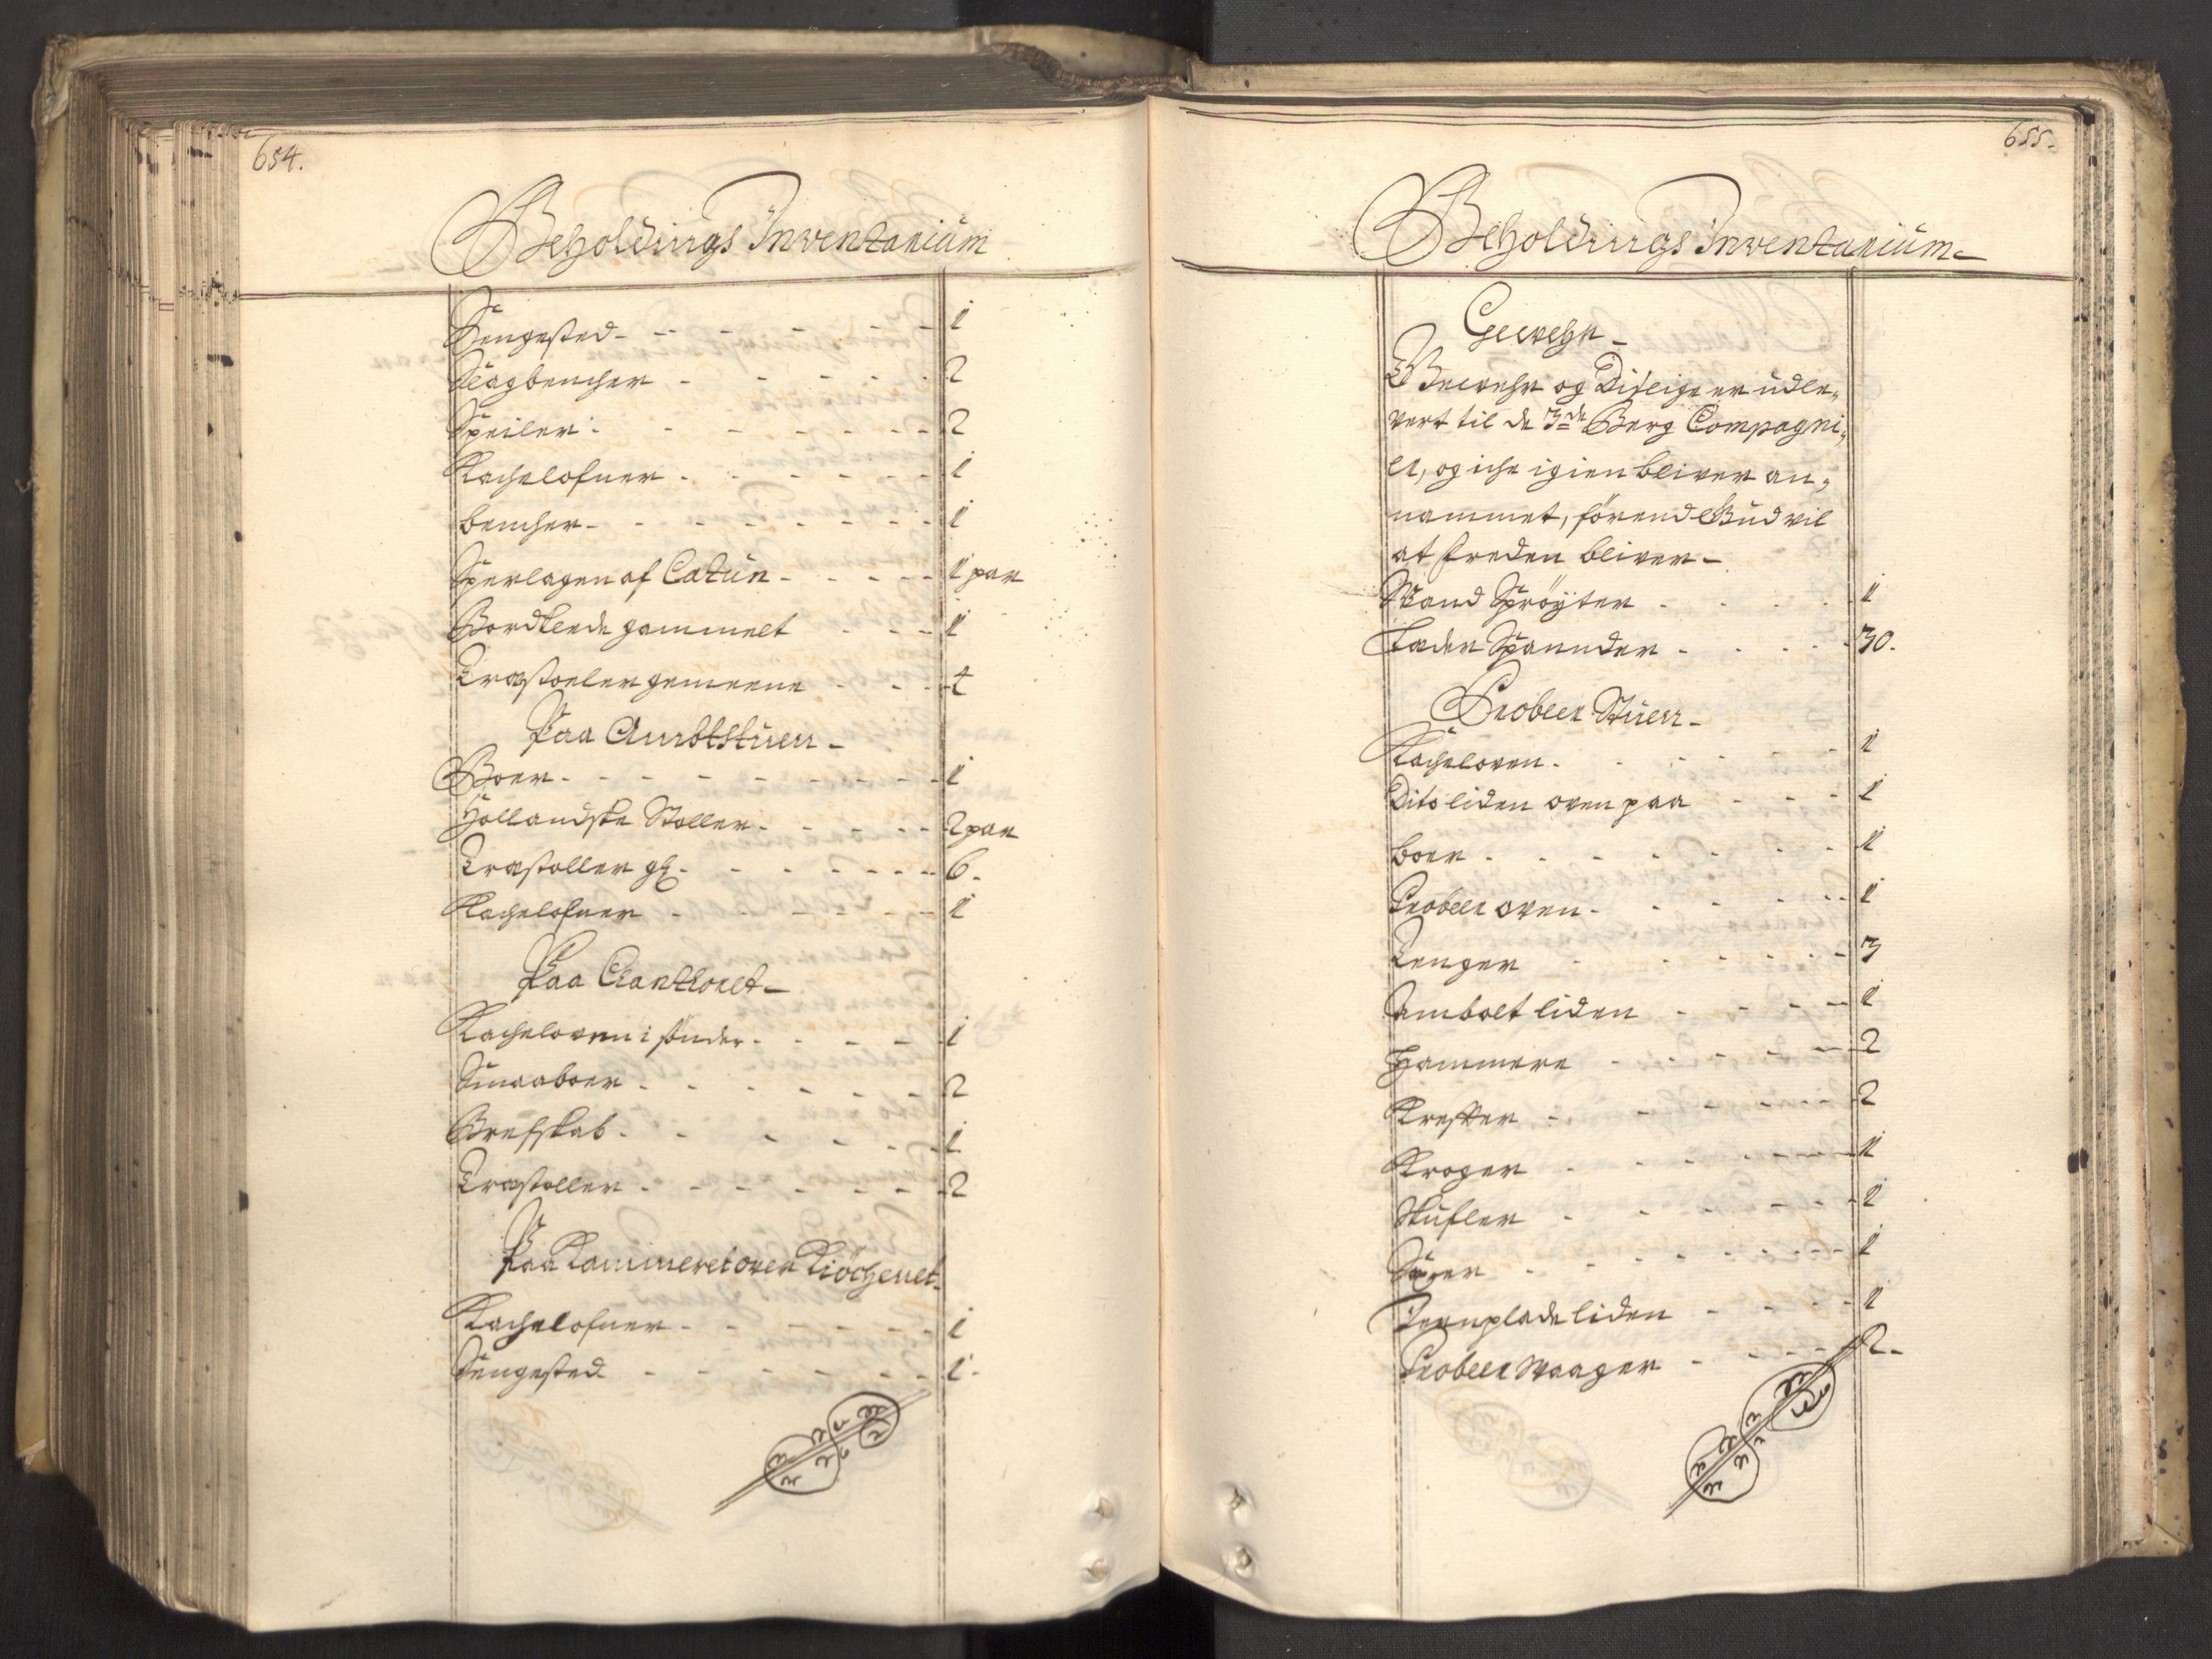 654.
Beholdings Inventarium
Sengested - 1
Slagbencher - 2
Speiler - 2
Kachelofner - 1
bencher - 1
Sperlagen af Catun - 1 par
Bordklede gammelt - 1
Træstoeler gemeene - 4
Paa Ambtstuen
Boer - 1
Hollandske Stoller - 2 par
Træstoller gl - 6.
Kachelofner - 1
Paa Contoret
Kacheloven i sönder - 1
Smaaboer - 2
Brefskab - 1
Træstoller - 2
Paa Kammeret over Kiöchenet
Kachelofner - 1
Sengested - 1.
655.
Beholdings Inventarium
Gewehr
Gewehr og Disleige er udle,
vert til de 3de Berg Compagni,
er, og iche igien bliver an,
nammet, förend Gud vil
at freden bliver
Wand Spröyter - 1
Læder Spannder - 30.
Probeer Stuen
Kacheloven - 1
Dito liden oven paa - 1
boer - 1
Probeer oven - 1
Tenger - 3
Ambolt liden - 1
Hammere - 2
Kroger - 1
Skufler - 1
Jernplade liden - 1
Probeer Waager - 2